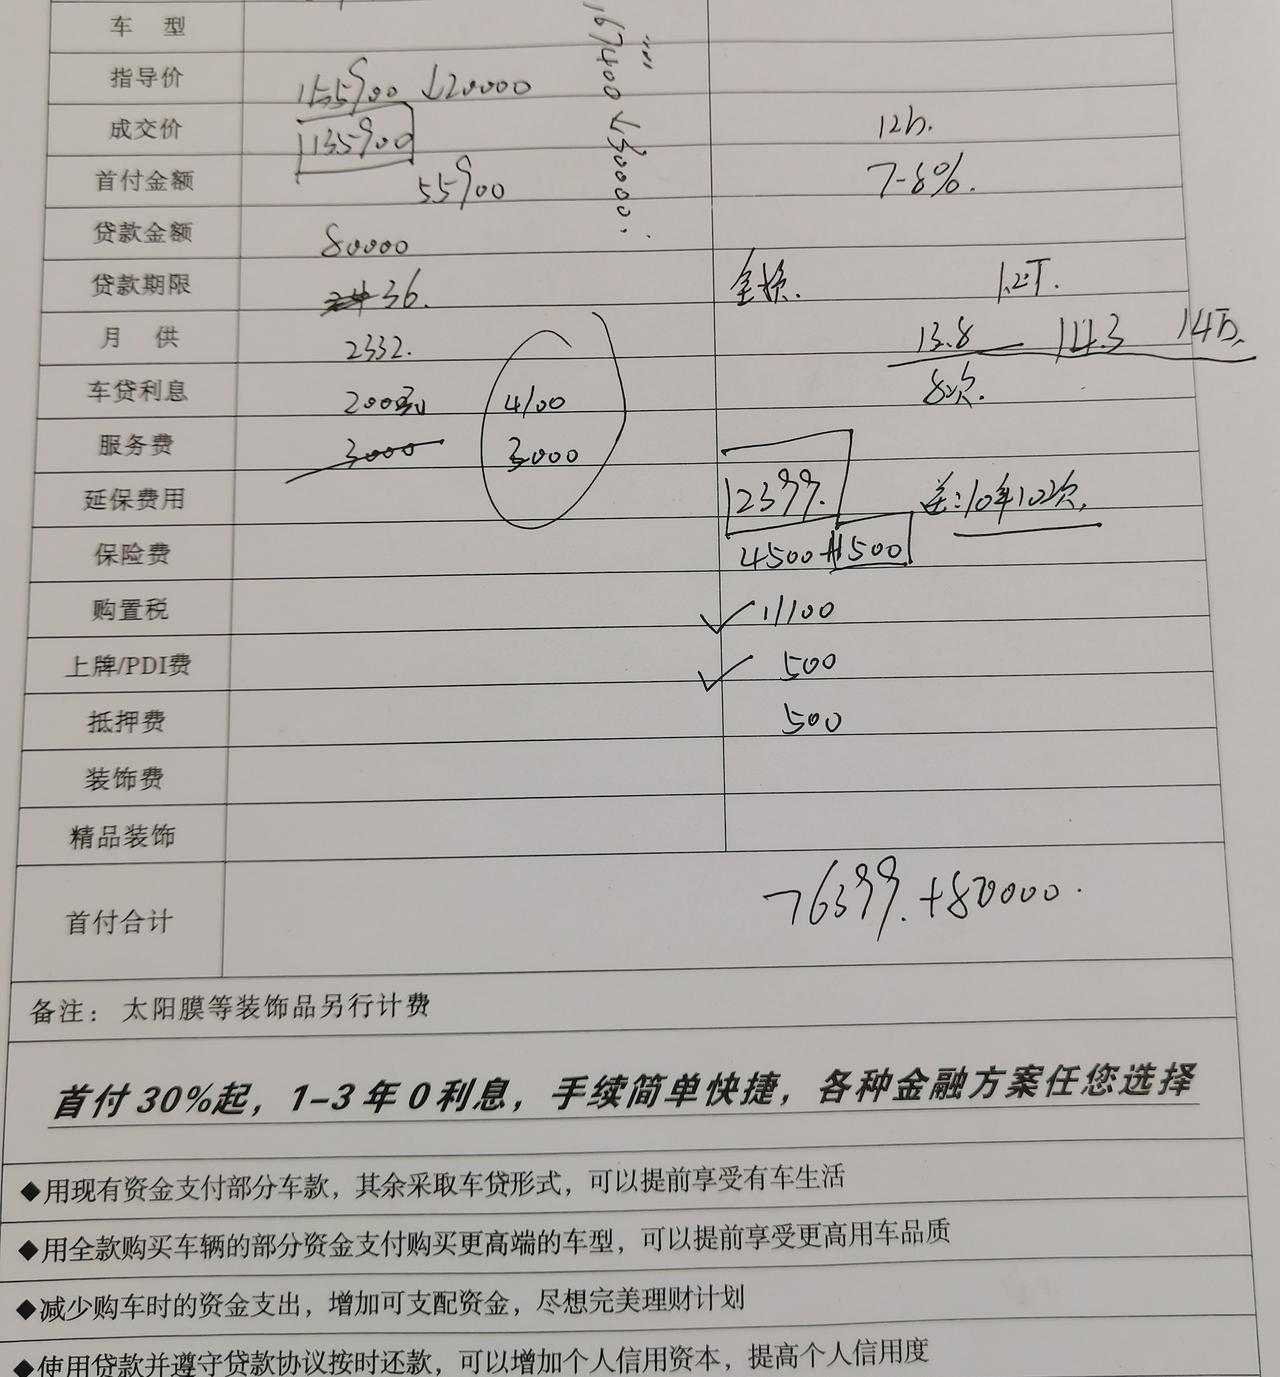 车 型
167400↓30000
指导价 155900 ↓20000
成交价 135900 12h.
首付金额 55900 7-8%.
贷款金额 80000
贷款期限 36. 1.2T.
月 供 2332. 13.8 14.3 14万
车贷利息 4100 8次.
服务费 3000 3000
延保费用 12399. 送:10年10次.
保险费 4500+1500
购置税 ✓ 11100
上牌/PDI费 ✓ 500
抵押费 500
装饰费
精品装饰
首付合计 76399.+80000.
备注： 太阳膜等装饰品另行计费
首付30%起，1-3年0利息，手续简单快捷，各种金融方案任您选择
◆用现有资金支付部分车款，其余采取车贷形式，可以提前享受有车生活
◆用全款购买车辆的部分资金支付购买更高端的车型，可以提前享受更高用车品质
◆减少购车时的资金支出，增加可支配资金，尽想完美理财计划
◆使用贷款并遵守贷款协议按时还款，可以增加个人信用资本，提高个人信用度